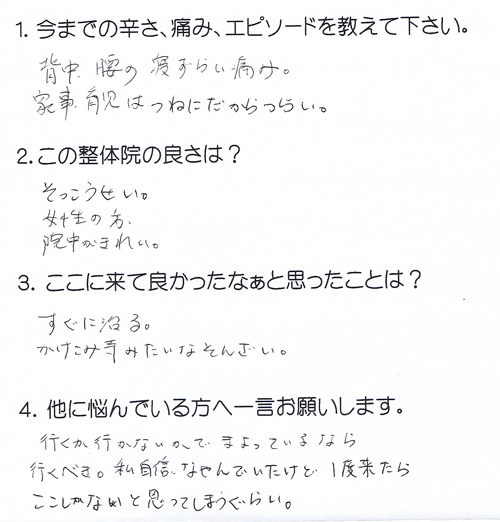 1. 今までの辛さ、痛み、エピソードを教えて下さい。
背中、腰の寝ずらい痛み。
家事、育児はつねにだからつらい。
2.この整体院の良さは？
そっこうせい。
女性の方、
院中がきれい。
3. ここに来て良かったなぁと思ったことは？
すぐに治る。
かけこみ寺みたいなそんざい。
4. 他に悩んでいる方へ一言お願いします。
行くか行かないかでまよっているなら
行くべき。私自信、なやんでいたけど1度来たら
ここしかないと思ってしまうぐらい。